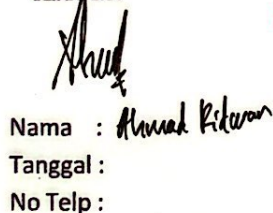 Nama : Ahmad Ridwan
Tanggal :
No Telp :